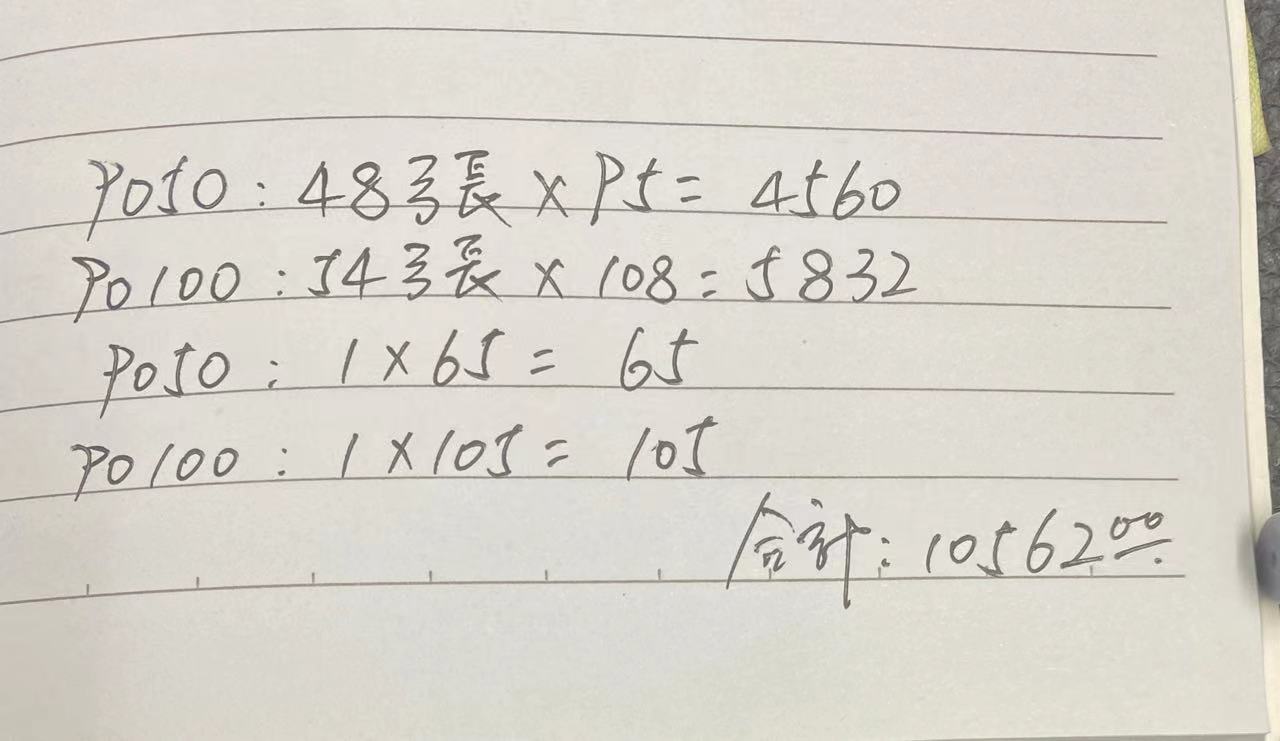 P050 : 48張 × 95 = 4560
P0100 : 54張 × 108 = 5832
P050 : 1 × 65 = 65
P0100 : 1 × 105 = 105
合計 : 10562.00